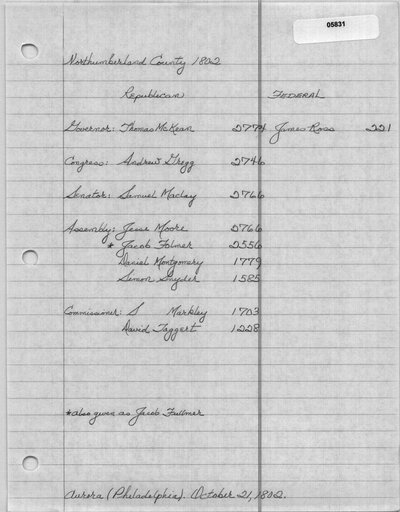 05831
Northumberland County 1802
Republican FEDERAL
Governor: Thomas McKean 2774 James Ross 221
Congress: Andrew Gregg 2746
Senator: Samuel Maclay 2766
Assembly: Jesse Moore 2766
* Jacob Folmer 2556
Daniel Montgomery 1779
Simon Snyder 1585
Commissioner: S Markley 1703
David Taggert 1228
*also given as Jacob Fullmer
Aurora (Philadelphia). October 21, 1802.